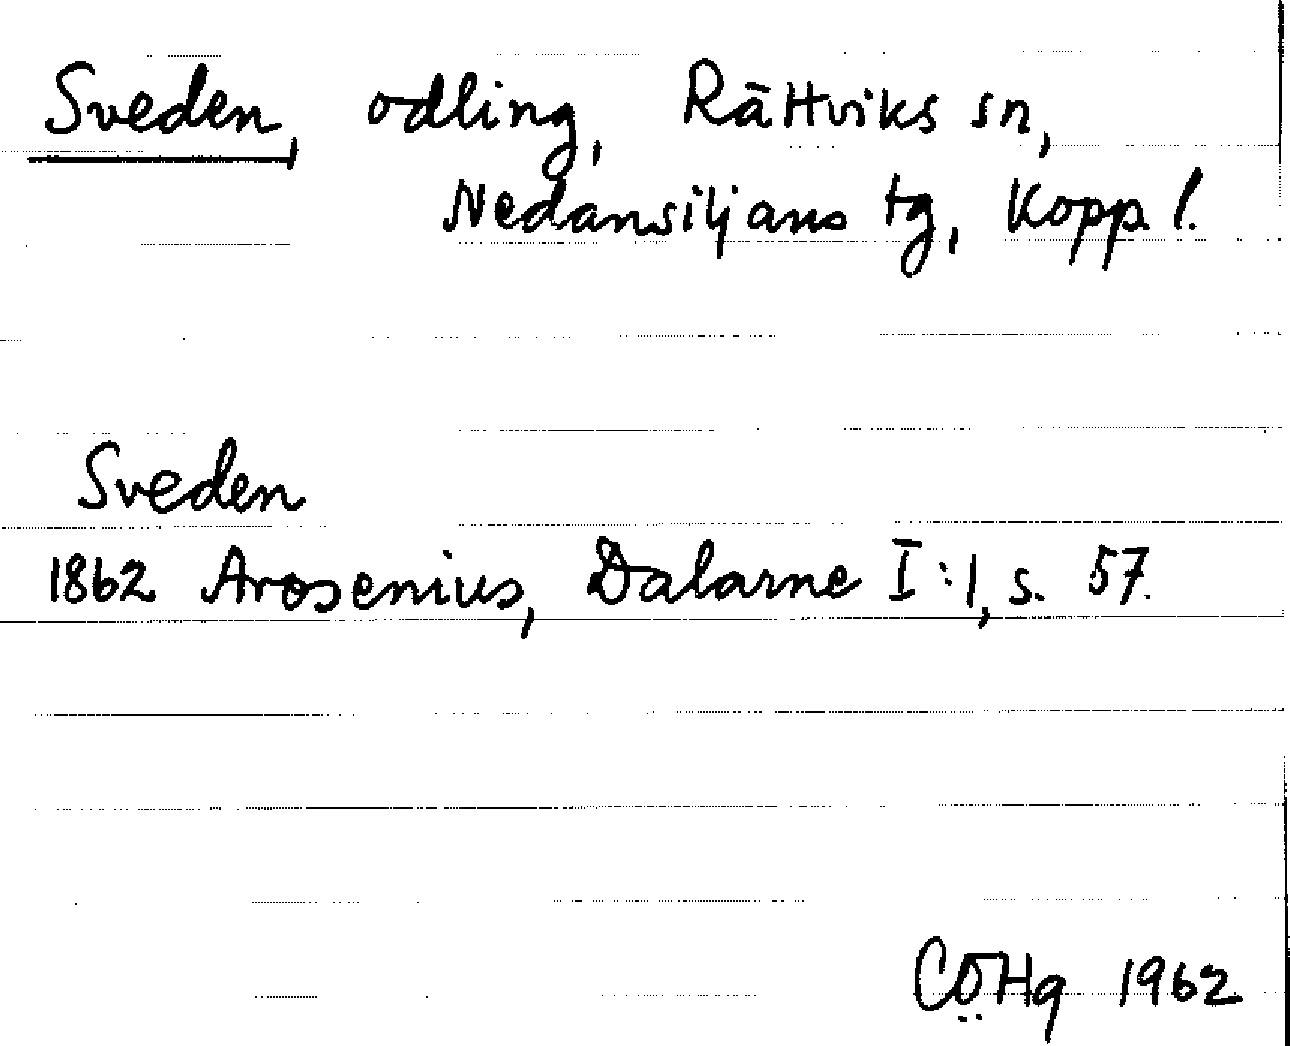 Sveden, odling, Rättviks sn,
Nedansiljans tg, Kopp. l.
Sveden
1862 Arosenius, Dalarne I:1, s. 57.
CÖHg 1962